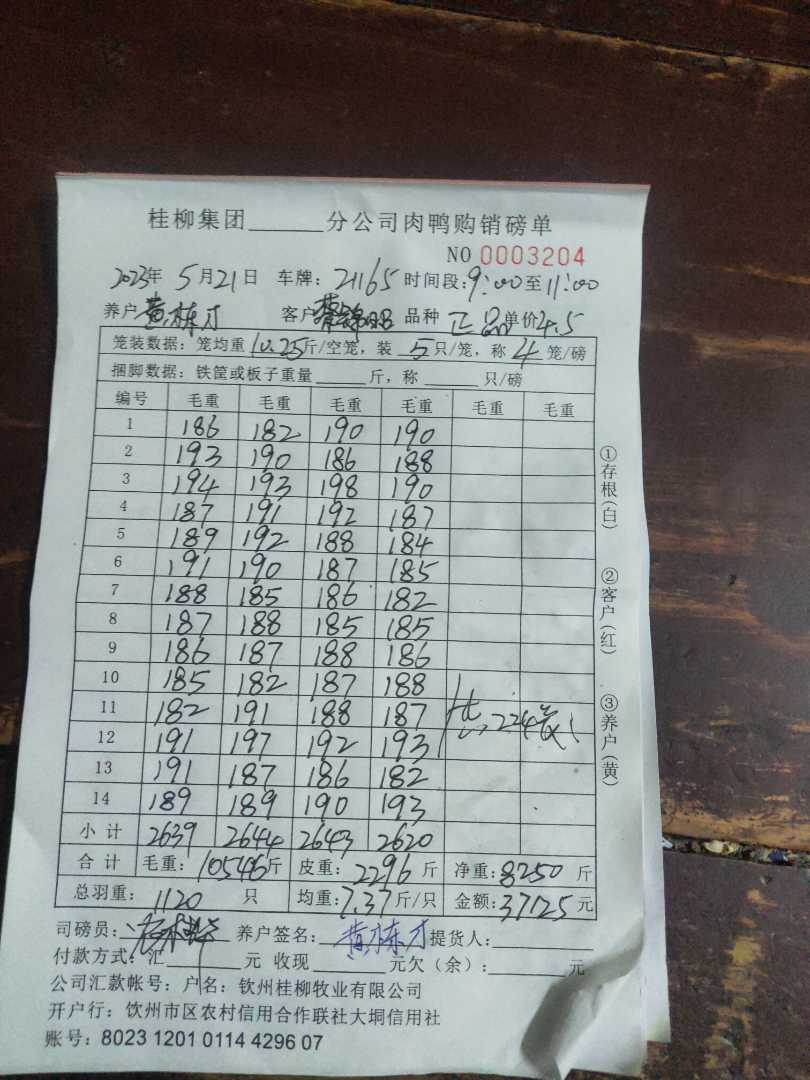 桂柳集团______分公司肉鸭购销磅单
NO 0003204
2023年 5月21日 车牌：21165 时间段：9:00至11:00
养户 黄栋才 客户 品种 正品 单价4.5
笼装数据：笼均重 10.25斤/空笼，装 5只/笼，称 4笼/磅
捆脚数据：铁筐或板子重量______斤，称______只/磅
编号 毛重 毛重 毛重 毛重 毛重 毛重
1 186 182 190 190
2 193 190 186 188
3 194 193 198 190
4 187 191 192 187
5 189 192 188 184
6 191 190 187 185
7 188 185 186 182
8 187 188 185 185
9 186 187 188 186
10 185 182 187 188
11 182 191 188 187 共224笼
12 191 197 192 193
13 191 187 186 182
14 189 189 190 193
小计 2639 2644 2643 2620
合计 毛重：10546斤 皮重：2296斤 净重：8250斤
总羽重：1120只 均重：7.37斤/只 金额：37125元
司磅员： 养户签名：黄栋才 提货人：______
付款方式：汇______元 收现______元欠（余）：______元
公司汇款帐号：户名：钦州桂柳牧业有限公司
开户行：钦州市区农村信用合作联社大垌信用社
账号：8023 1201 0114 4296 07
①存根（白） ②客户（红） ③养户（黄）